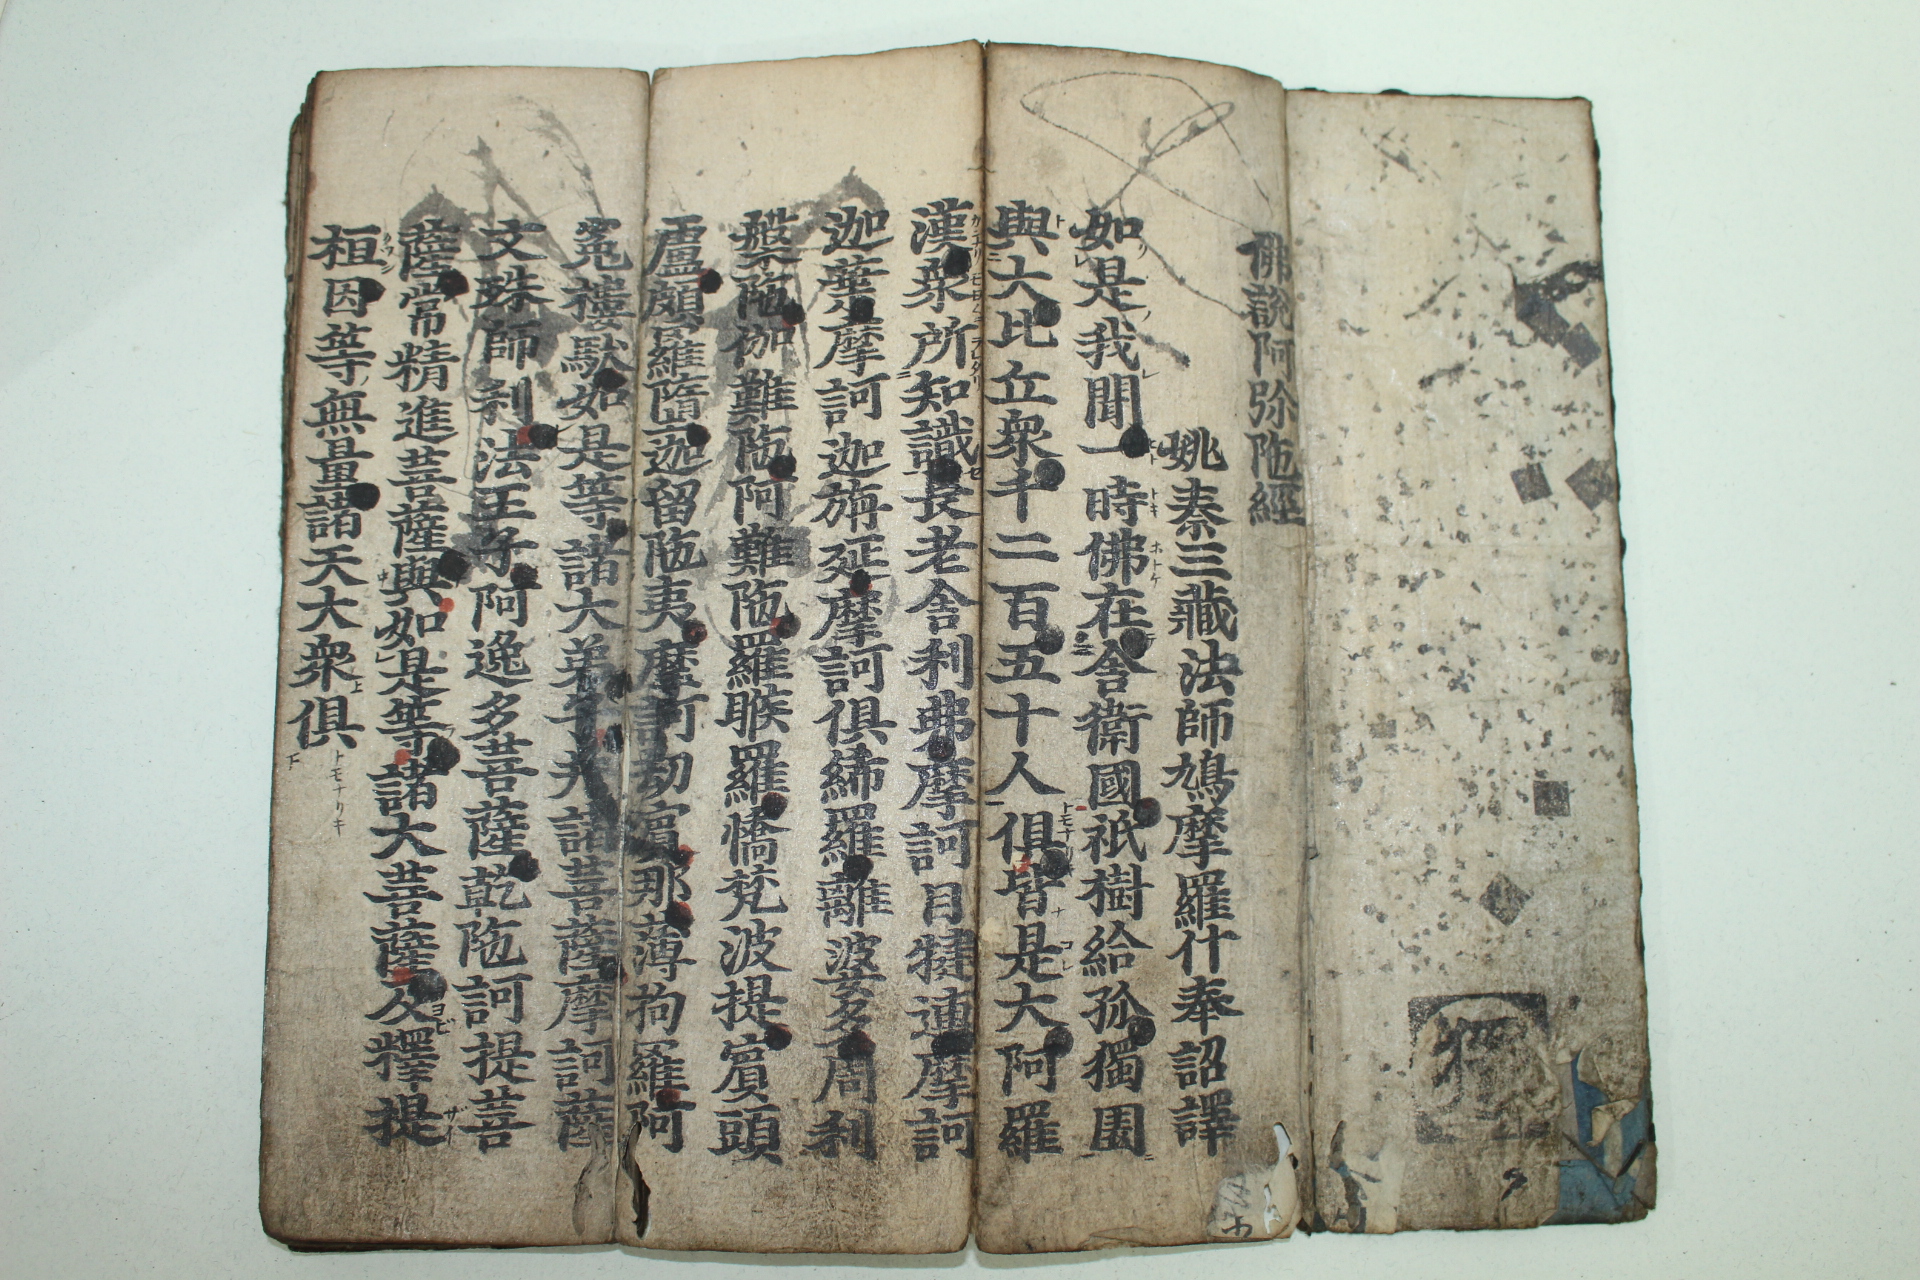 佛說阿弥陁經
姚秦三藏法師鳩摩羅什奉詔譯
如是我聞一時佛在舍衛國祇樹給孤獨園
與大比丘衆千二百五十人俱皆是大阿羅
漢衆所知識長老舍利弗摩訶目犍連摩訶
迦葉摩訶迦旃延摩訶俱絺羅離婆多周利
槃陁伽難陁阿難陁羅睺羅憍梵波提賓頭
盧頗羅隨迦留陁夷摩訶劫賓那薄拘羅阿
㝹樓馱如是等諸大弟子幷諸菩薩摩訶薩
文殊師利法王子阿逸多菩薩乾陁訶提菩
薩常精進菩薩與如是等諸大菩薩及釋提
桓因等無量諸天大衆俱